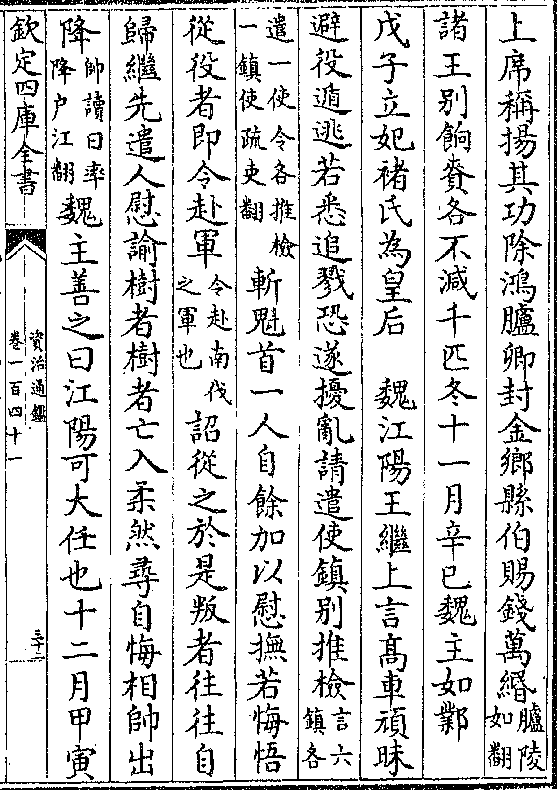 上席稱揚其功除鴻臚卿封金鄉縣伯賜錢萬緡臚陵如翻
諸王别餉賚各不減千匹冬十一月辛巳魏主如鄴
戊子立妃褚氏為皇后　魏江陽王繼上言髙車頑昧
避役遁逃若悉追戮恐遂擾亂請遣使鎮别推檢言六鎮各
遣一使令各推檢一鎮使疏吏翻斬魁首一人自餘加以慰撫若悔悟
從役者即令赴軍令赴南伐之軍也詔從之於是叛者往往自
歸繼先遣人慰諭樹者樹者亡入柔然尋自悔相帥出
降帥讀曰率降户江翻魏主善之曰江陽可大任也十二月甲寅
欽定四庫全書
資治通鑑
卷一百四十一
三十二